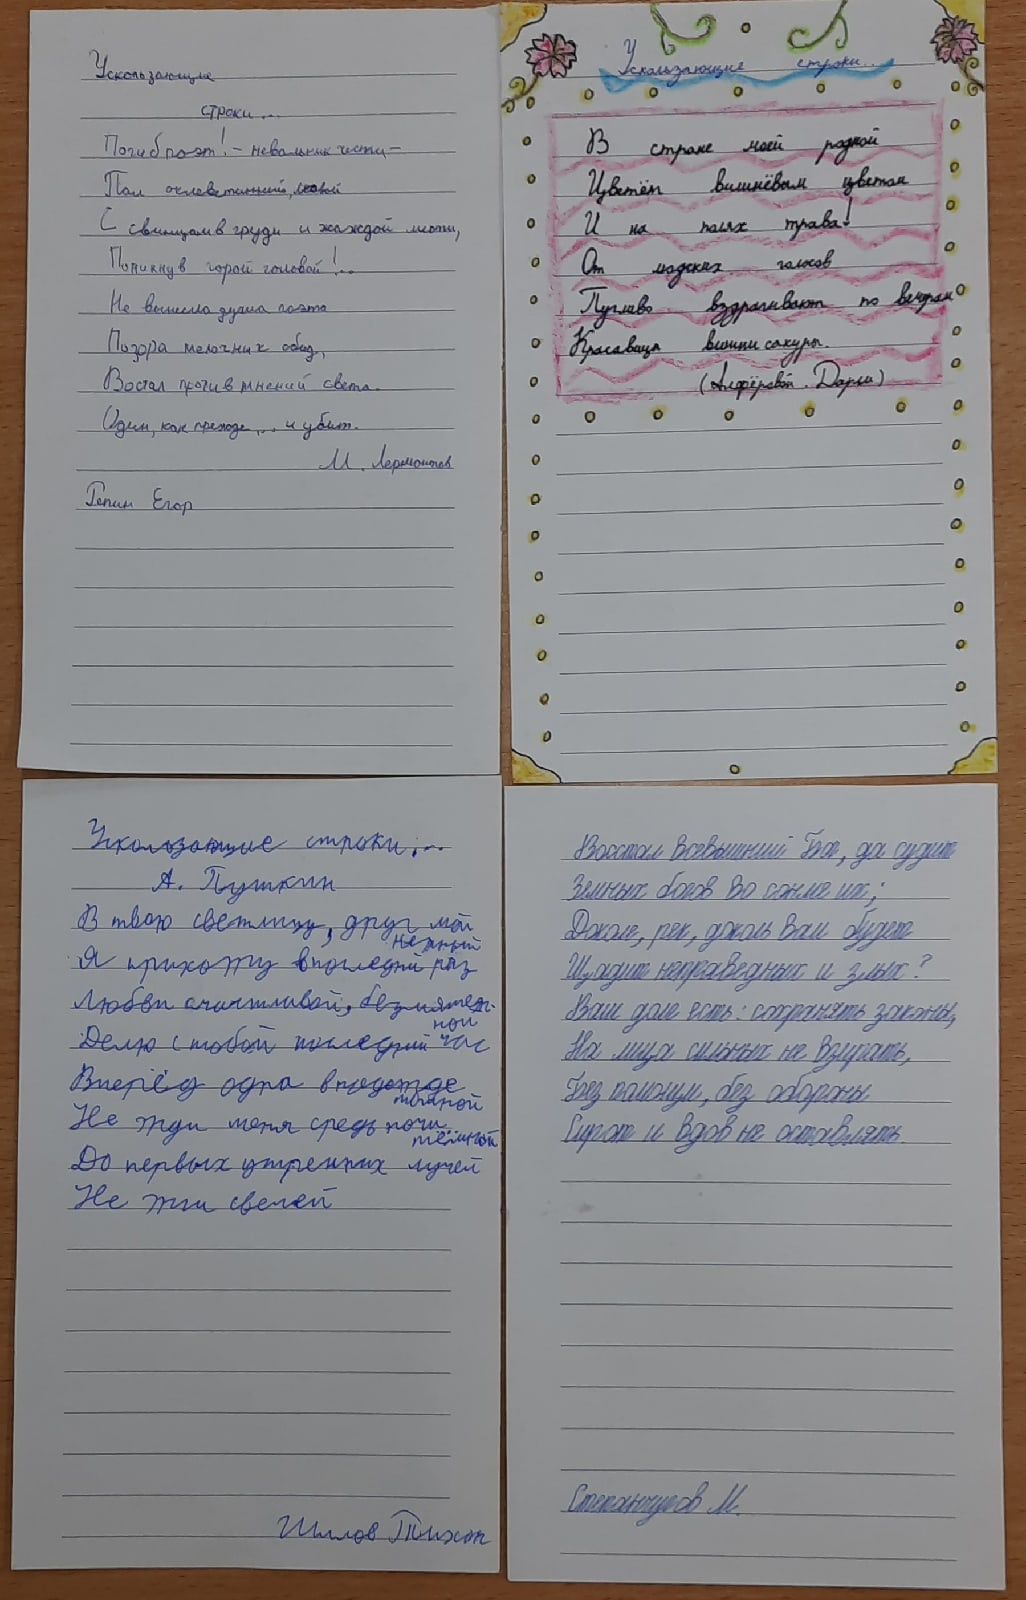 Ускользающие
строки...
Погиб поэт! - невольник чести -
Пал оклеветанный, молвой
С свинцом в груди и жаждой мести,
Поникнув гордой головой!..
Не вынесла душа поэта
Позора мелочных обид,
Востал против мнений света.
Один, как прежде,... и убит.
М. Лермонтов
Гепин Егор
Ускользающие строки...
В стране моей родной
Цветёт вишнёвым цветом
И на полях трава!
От людских голосов
Пугливо вздрагивают по вечерам
Красавица вишни сакуры.
(Алфёровой Дарьи)
Ускользающие строки...
А. Пушкин
В твою светлицу, друг мой
нежный
Я прихожу в последний раз
Любви счастливой, безмятеж-
ной
Делю с тобой последний час
Вперёд одна в надежде
томной
Не жди меня средь ночи
тёмной
До первых утренних лучей
Не жги свечей
Шилов Тихон
Восстал всевышний Бог, да судит
Земных богов во сонме их;
Доколе, рек, доколь вам будет
Щадить неправедных и злых?
Ваш долг есть: сохранять законы,
На лица сильных не взирать,
Без помощи, без обороны
Сирот и вдов не оставлять
Степанчугов М.